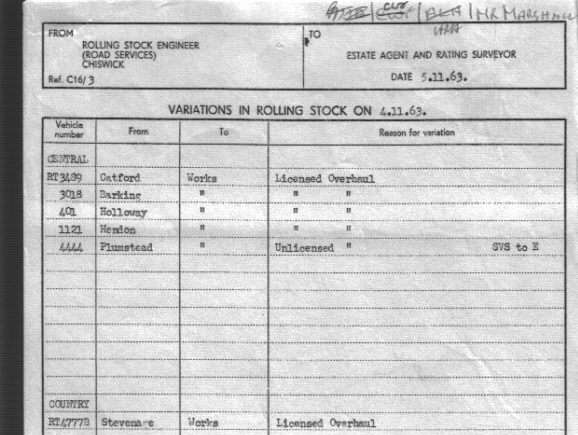 MR MARSHALL
FROM
ROLLING STOCK ENGINEER
(ROAD SERVICES)
CHISWICK
Ref. C16/3
TO
ESTATE AGENT AND RATING SURVEYOR
DATE 5.11.63.
VARIATIONS IN ROLLING STOCK ON 4.11.63.
Vehicle number From To Reason for variation
CENTRAL
RT3489 Catford Works Licensed Overhaul
3018 Barking " " "
401 Holloway " " "
1121 Hendon " " "
4444 Plumstead " Unlicensed " SVS to E
COUNTRY
RT4777B Stevenage Works Licensed Overhaul